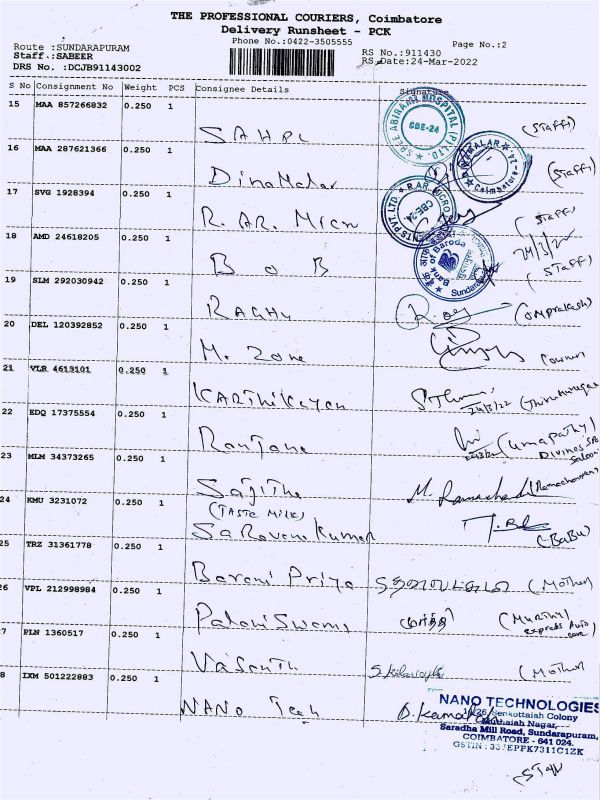 THE PROFESSIONAL COURIERS, Coimbatore
Delivery Runsheet - PCK
Phone No.:0422-3505555
Page No.:2
Route :SUNDARAPURAM
Staff.:SABEER
DRS No. :DCJB91143002
RS No.:911430
RS Date:24-Mar-2022
S No Consignment No Weight PCS Consignee Details Signature
15 MAA 857266832 0.250 1
SAHPL (Staff)
SREE ABIRAMI HOSPITAL (P) LTD. CBE-24
16 MAA 287621366 0.250 1
DinaMalar (Staff)
DINAMALAR Coimbatore-24
17 SVG 1928394 0.250 1
R.AR. Micro (Staff)
R.AR MICRO PVT.LTD CBE-24
24/3/22
18 AMD 24618205 0.250 1
B O B (Staff)
Bank of Baroda
Sundarapuram
19 SLM 292030942 0.250 1
RAGHU (Omprakash)
20 DEL 120392852 0.250 1
M. Zone (owner
21 VLR 4613101 0.250 1
KARthiKeyan 24/3/22 (Thirumurugan
22 EDQ 17375554 0.250 1
Ranjana (umapathy)
Divines Spa
Saloon
23 MLM 34373265 0.250 1
Sajitha M. Ramachand (Ramachandran)
(TASTE MILK)
24 KMU 3231072 0.250 1
SaRavana Kumar (BaBu)
25 TRZ 31361778 0.250 1
Barani Priya (Mother)
26 VPL 212998984 0.250 1
PalaniSwami (Murthy)
express Auto
care)
27 PLN 1360517 0.250 1
Vasanth (Mother
28 IXM 501222883 0.250 1
NANO Tech
NANO TECHNOLOGIES
Senkottaiah Colony
Muthaiah Nagar,
Saradha Mill Road, Sundarapuram,
COIMBATORE - 641 024.
GSTIN : 33JEPPK7311C1ZK
Staff